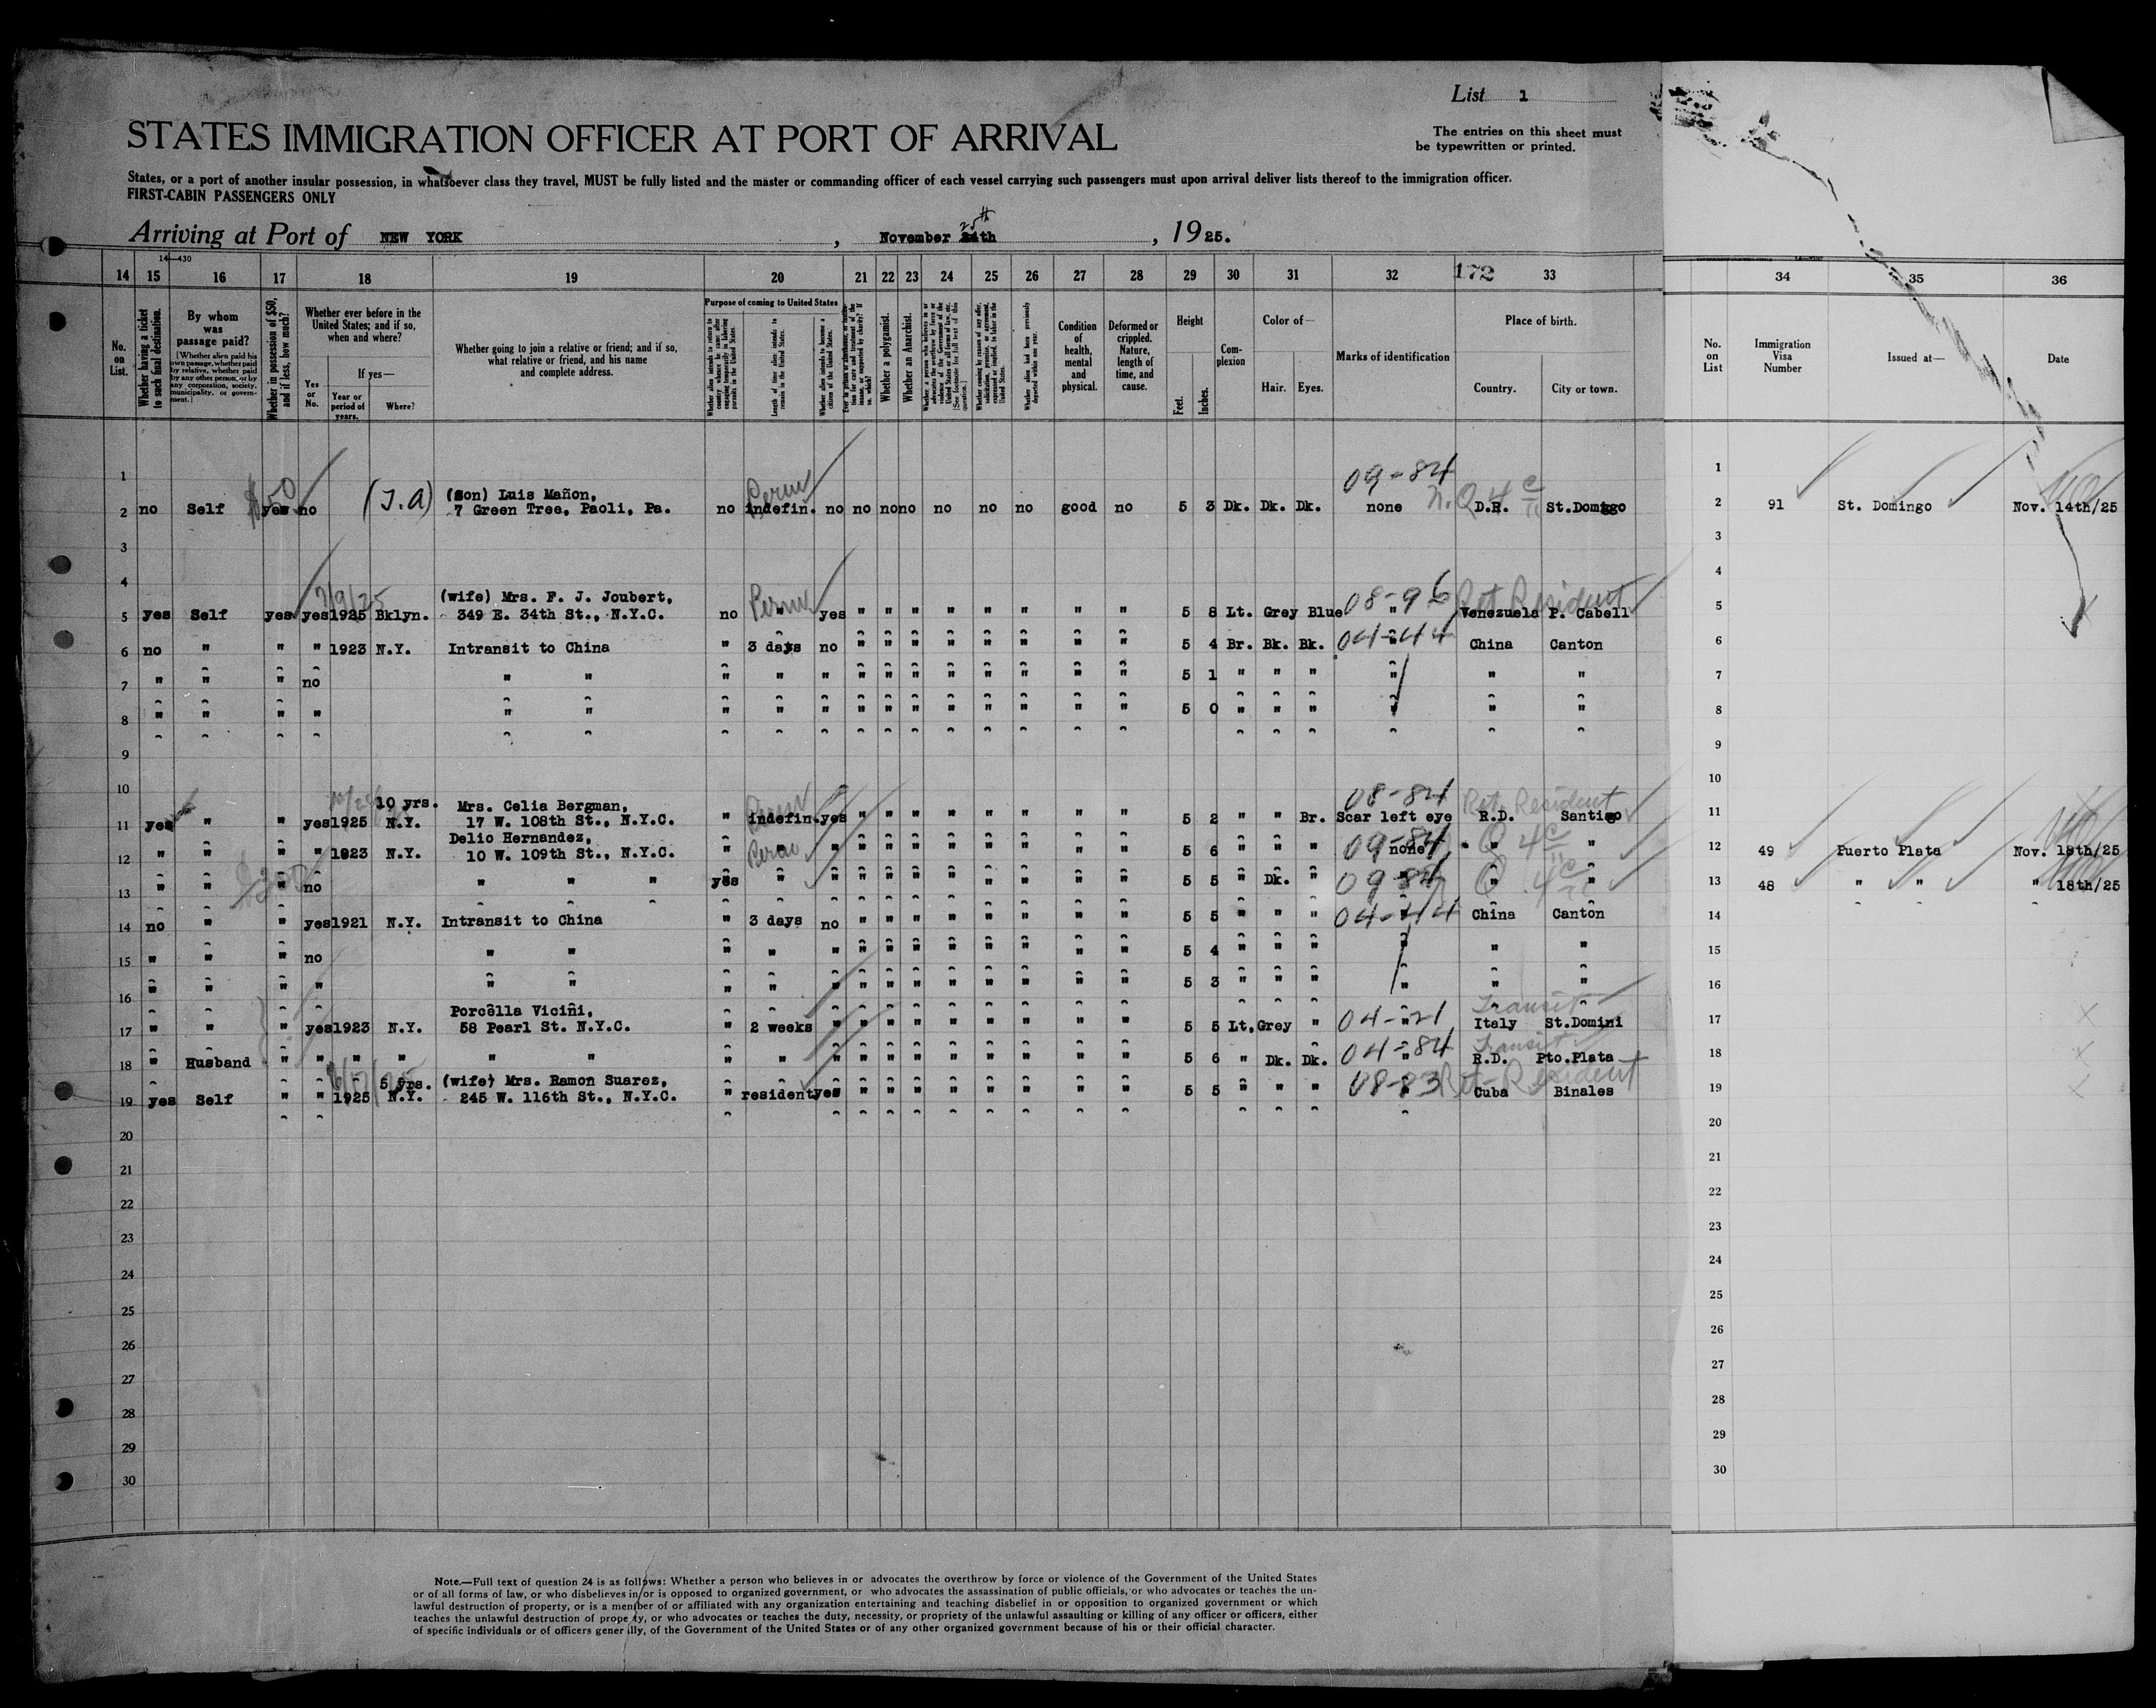 List 1
STATES IMMIGRATION OFFICER AT PORT OF ARRIVAL
The entries on this sheet must
be typewritten or printed.
States, or a port of another insular possession, in whatsoever class they travel, MUST be fully listed and the master or commanding officer of each vessel carrying such passengers must upon arrival deliver lists thereof to the immigration officer.
FIRST-CABIN PASSENGERS ONLY
Arriving at Port of NEW YORK, November 24th 25th, 1925.
14—430
14 15 16 17 18 19 20 21 22 23 24 25 26 27 28 29 30 31 32 172 33 34 35 36
No. on List.
Whether having a ticket to such final destination.
By whom was passage paid?
[Whether alien paid his own passage, whether paid by relative, whether paid by any other person, or by any corporation, society, municipality, or government.]
Whether in possession of $50, and if less, how much?
Whether ever before in the United States; and if so, when and where?
Yes or No.
If yes—
Year or period of years.
Where?
Whether going to join a relative or friend; and if so, what relative or friend, and his name and complete address.
Purpose of coming to United States
Length of time alien intends to remain in the United States.
Whether alien intends to become a citizen of the United States.
Whether a polygamist.
Whether an Anarchist.
Condition of health, mental and physical.
Deformed or crippled. Nature, length of time, and cause.
Height
Feet. Inches.
Complexion
Color of—
Hair. Eyes.
Marks of identification
Place of birth.
Country. City or town.
No. on List
Immigration Visa Number
Issued at—
Date
1
09-84
2 no Self $50 yes no (T.A) (Son) Luis Mañon, 7 Green Tree, Paoli, Pa. no Perm indefin. no no no no no no no good no 5 3 Dk. Dk. Dk. none D.R. St.Domingo 2 91 St. Domingo Nov. 14th/25
3
4
5 yes Self yes yes 7/9/25 1925 Bklyn. (wife) Mrs. F. J. Joubert, 349 E. 34th St., N.Y.C. no Perm " yes " " " " " " " " 5 8 Lt. Grey Blue 08-96 " Ret Resident Venezuela P. Cabell 5
6 no " " " 1923 N.Y. Intransit to China " 3 days no " " " " " " " " 5 4 Br. Bk. Bk. 04-44 " China Canton 6
7 " " " no " " " " " " " " " " " " " 5 1 " " " " " " 7
8 " " " " " " " " " " " " " " " " " 5 0 " " " " " " 8
9
10
11 yes " " yes 1925 10 yrs. N.Y. Mrs. Celia Bergman, 17 W. 108th St., N.Y.C. " indefin. yes " " " " " " " " 5 2 " " Br. 08-84 Scar left eye Ret. Resident R.D. Santigo 11
12 " " " " 1923 N.Y. Delio Hernandez, 10 W. 109th St., N.Y.C. " " " " " " " " " " " 5 6 " " " 09-84 none " " 12 49 Puerto Plata Nov. 18th/25
13 " " " no " " " yes " " " " " " " " " " 5 5 " Dk. " 09-84 " " " 13 48 " " " 18th/25
14 no " " yes 1921 N.Y. Intransit to China " 3 days no " " " " " " " " 5 5 " " " 04-44 " China Canton 14
15 " " " no " " " " " " " " " " " " " 5 4 " " " " " " 15
16 " " " " " " " " " " " " " " " " " 5 3 " " " " " " 16
17 " " " yes 1923 N.Y. Porcella Vicini, 58 Pearl St. N.Y.C. " 2 weeks " " " " " " " " " 5 5 Lt. Grey " 04-21 " Transit Italy St.Domini 17
18 " Husband " " " " " " " " " " " " " " " " " 5 6 " Dk. Dk. 04-84 " Transit R.D. Pto.Plata 18
19 yes Self " " 1925 5 yrs. N.Y. (wife) Mrs. Ramon Suarez, 245 W. 116th St., N.Y.C. " resident yes " " " " " " " " 5 5 " " " 08-23 " Ret-Resident Cuba Binales 19
20
21
22
23
24
25
26
27
28
29
30
Note.—Full text of question 24 is as follows: Whether a person who believes in or advocates the overthrow by force or violence of the Government of the United States
or of all forms of law, or who disbelieves in or is opposed to organized government, or who advocates the assassination of public officials, or who advocates or teaches the un-
lawful destruction of property, or is a member of or affiliated with any organization entertaining and teaching disbelief in or opposition to organized government or which
teaches the unlawful destruction of property, or who advocates or teaches the duty, necessity, or propriety of the unlawful assaulting or killing of any officer or officers, either
of specific individuals or of officers generally, of the Government of the United States or of any other organized government because of his or their official character.